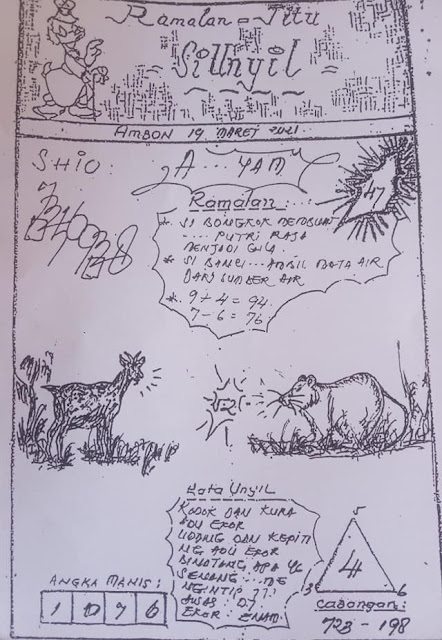 Ramalan = Jitu
Si Unyil
AMBON 19 MARET 2021
SHIO: A...YAM
47
Ramalan:
* SI BONGKOK MEMBUAT
.... PUTRI RAJA
MENJADI GILA.
* SI BANCI...AMBIL MATA AIR
DARI SUMBER AIR
* 9+4 = 94.
7-6 = 76.
Kata Unyil
KODOK DAN KURA
ADU EKOR
UDANG DAN KEPITI
NG ADU EKOR
BINATANG APA YG
SENANG...ME
NGINTIP ??!
EKOR: ENAM.
5
4
3 6
ANGKA MANIS:
1 0 7 6
Cabangan:
723 - 198